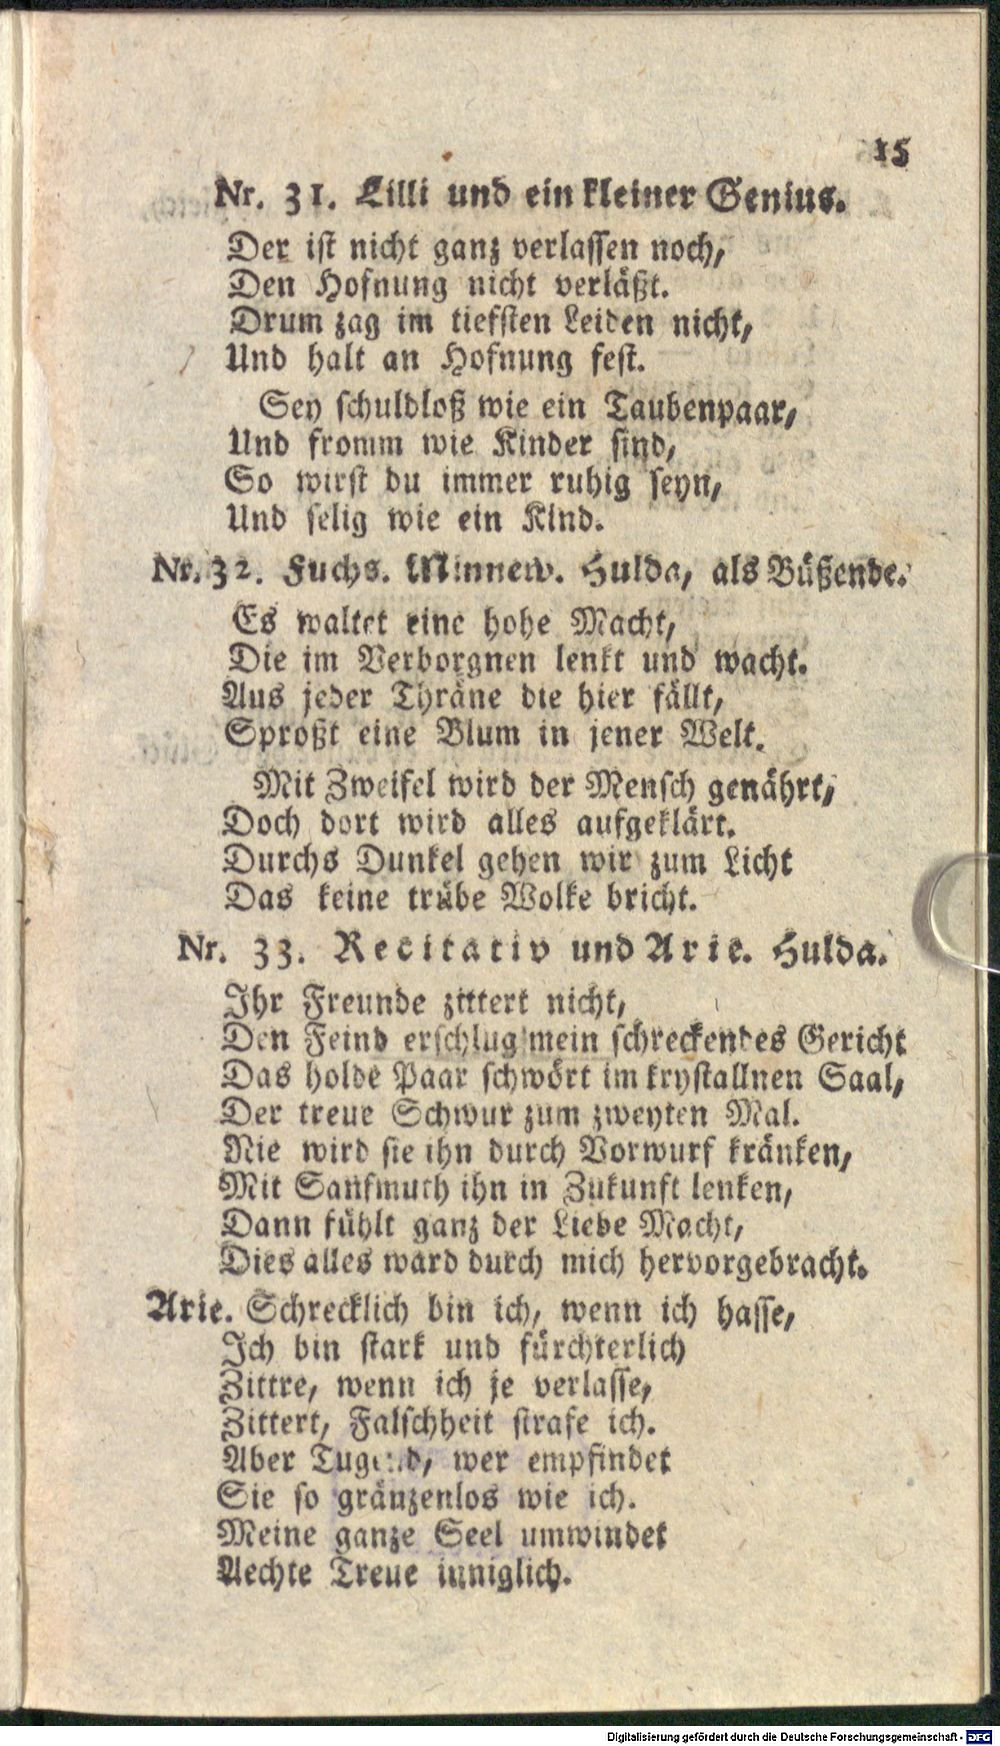 15
Nr. 31. Lilli und ein kleiner Genius.
Der ist nicht ganz verlassen noch,
Den Hofnung nicht verläßt.
Drum zag im tiefsten Leiden nicht,
Und halt an Hofnung fest.
Sey schuldloß wie ein Taubenpaar,
Und fromm wie Kinder sind,
So wirst du immer ruhig seyn,
Und selig wie ein Kind.
Nr. 32. Fuchs. Minnew. Hulda, als Büßende.
Es waltet eine hohe Macht,
Die im Verborgnen lenkt und wacht.
Aus jeder Thräne die hier fällt,
Sproßt eine Blum in jener Welt.
Mit Zweifel wird der Mensch genährt,
Doch dort wird alles aufgeklärt.
Durchs Dunkel gehen wir zum Licht
Das keine trübe Wolke bricht.
Nr. 33. Recitativ und Arie. Hulda.
Ihr Freunde zittert nicht,
Den Feind erschlug mein schreckendes Gericht
Das holde Paar schwört im krystallnen Saal,
Der treue Schwur zum zweyten Mal.
Nie wird sie ihn durch Vorwurf kränken,
Mit Sanfmuth ihn in Zukunft lenken,
Dann fühlt ganz der Liebe Macht,
Dies alles ward durch mich hervorgebracht.
Arie. Schrecklich bin ich, wenn ich hasse,
Ich bin stark und fürchterlich
Zittre, wenn ich je verlasse,
Zittert, Falschheit strafe ich.
Aber Tugend, wer empfindet
Sie so gränzenlos wie ich.
Meine ganze Seel umwindet
Aechte Treue inniglich.
Digitalisierung gefördert durch die Deutsche Forschungsgemeinschaft - DFG